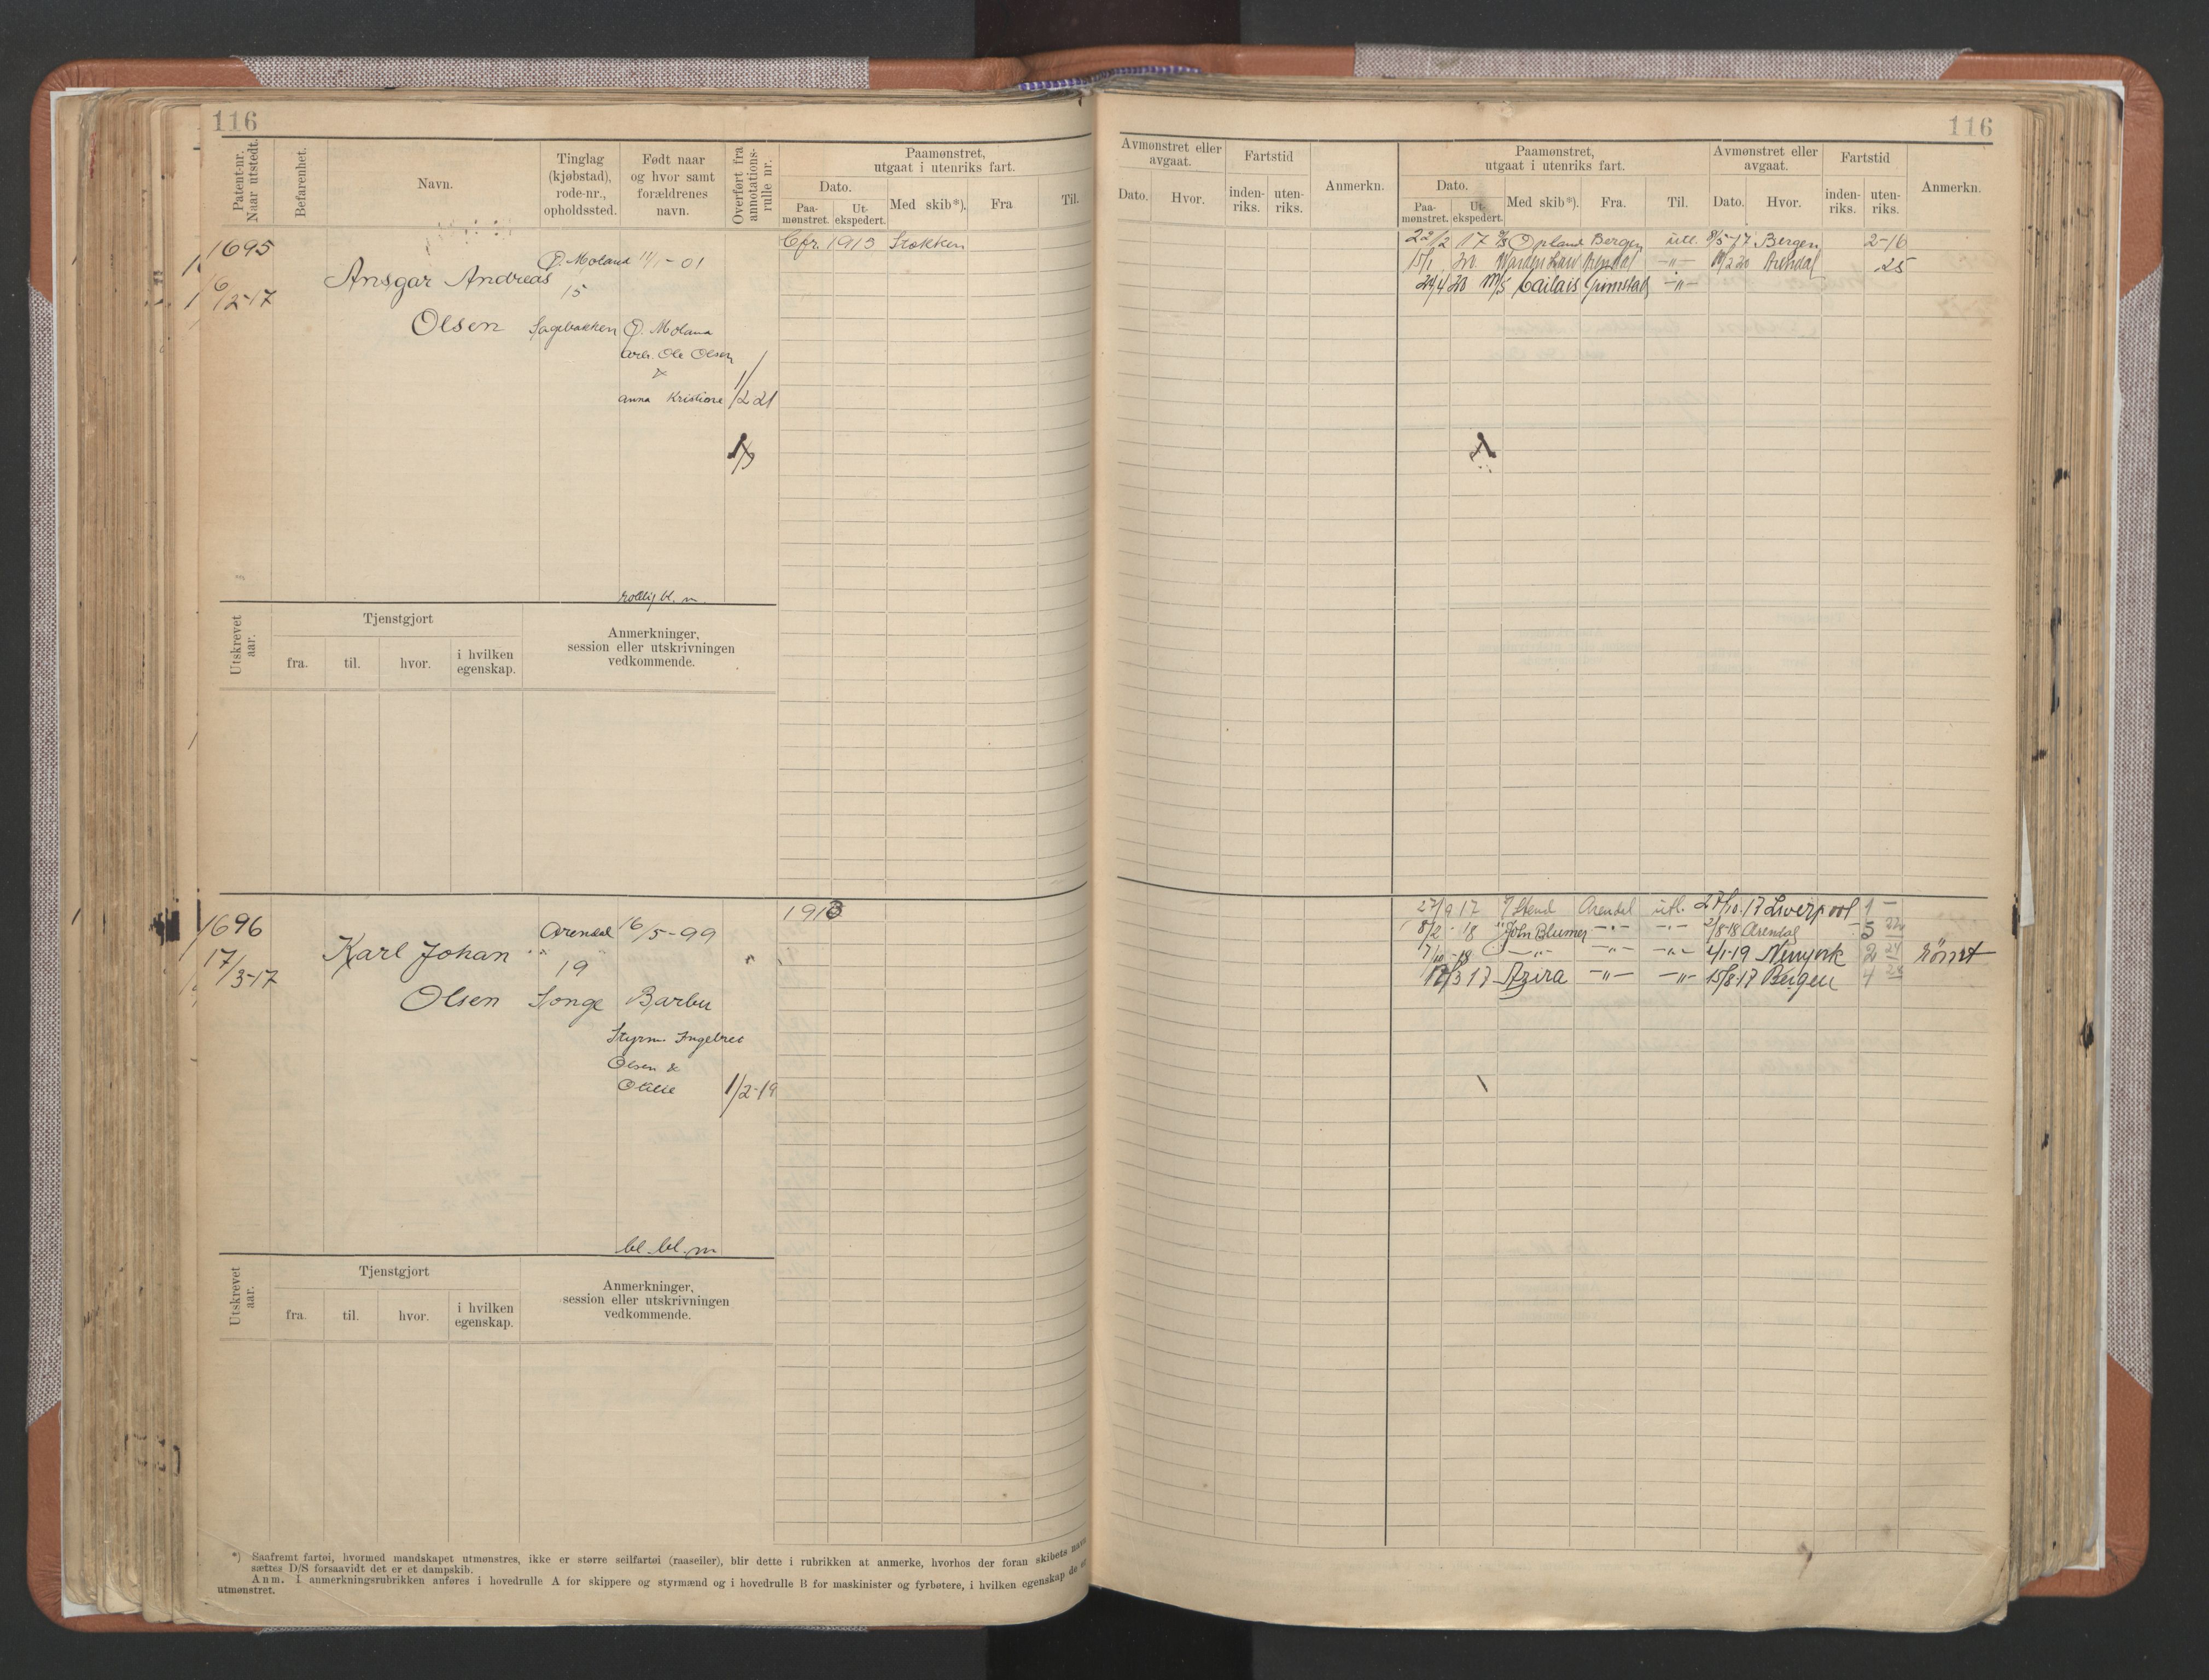 116
Patent-nr.
Naar utstedt.
Befarenhet.
Navn.
Tinglag
(kjøbstad),
rode-nr.,
opholdssted.
Født naar
og hvor samt
forældrenes
navn.
Overført fra
annotations-
rulle nr.
Paamønstret,
utgaat i utenriks fart.
Dato.
Paa-
mønstret.
Ut-
ekspedert.
Med skib*).
Fra
Til.
1695
6/2-17
Ansgar Andreas
Olsen
Ø. Moland
15
Sagebakken
11/1-01
Ø. Moland
arb. Ole Olsen
&
Anna Kristine
1/2 21
Cfr. 1913 Stokken
Utskrevet
aar.
Tjenstgjort
fra.
til.
hvor.
i hvilken
egenskap.
Anmerkninger,
session eller utskrivningen
vedkommende.
1696
17/3-17
Karl Johan
Olsen
Arendal
19
Songe
16/5-99
Barbu
Styrm. Ingebret
Olsen &
Otilie
1/2-19
1913
bl. bl. m
Utskrevet
aar.
Tjenstgjort
fra.
til.
hvor.
i hvilken
egenskap.
Anmerkninger,
session eller utskrivningen
vedkommende.
*) Saafremt fartøi, hvormed mandskapet utmønstres, ikke er større seilfartøi (raaseiler), blir dette i rubrikken at anmerke, hvorhos der foran skibets navn
sættes D/S forsaavidt det er et dampskib.
Anm. I anmerkningsrubrikken anføres i hovedrulle A for skippere og styrmænd og i hovedrulle B for maskinister og fyrbøtere, i hvilken egenskap de er
utmønstret.
116
Avmønstret eller
avgaat.
Dato.
Hvor.
Fartstid
inden-
riks.
uten-
riks.
Anmerkn.
Paamønstret,
utgaat i utenriks fart.
Dato.
Paa-
mønstret.
Ut-
ekspedert.
Med skib*).
Fra.
Til.
Avmønstret eller
avgaat.
Dato.
Hvor.
Fartstid
inden-
riks.
uten-
riks.
Anmerkn.
22/2 17 Opland Bergen utl. 8/5-17 Bergen 2-16
15/1 20 Arendal -"- Arendal 25
24/4 23 M/S Cailais Grimstad -"-
27/9 17 Stend Arendal utl. 27/10.17 Liverpool 1 -
8/2 - 18 " John Blumer -"- -"- 2/8-18 Arendal 5
7/10-18 -"- -"- -"- 4/1-19 Newyork 2 24 rømt
17/3 17 Azira -"- -"- 15/8-17 Bergen 4 28